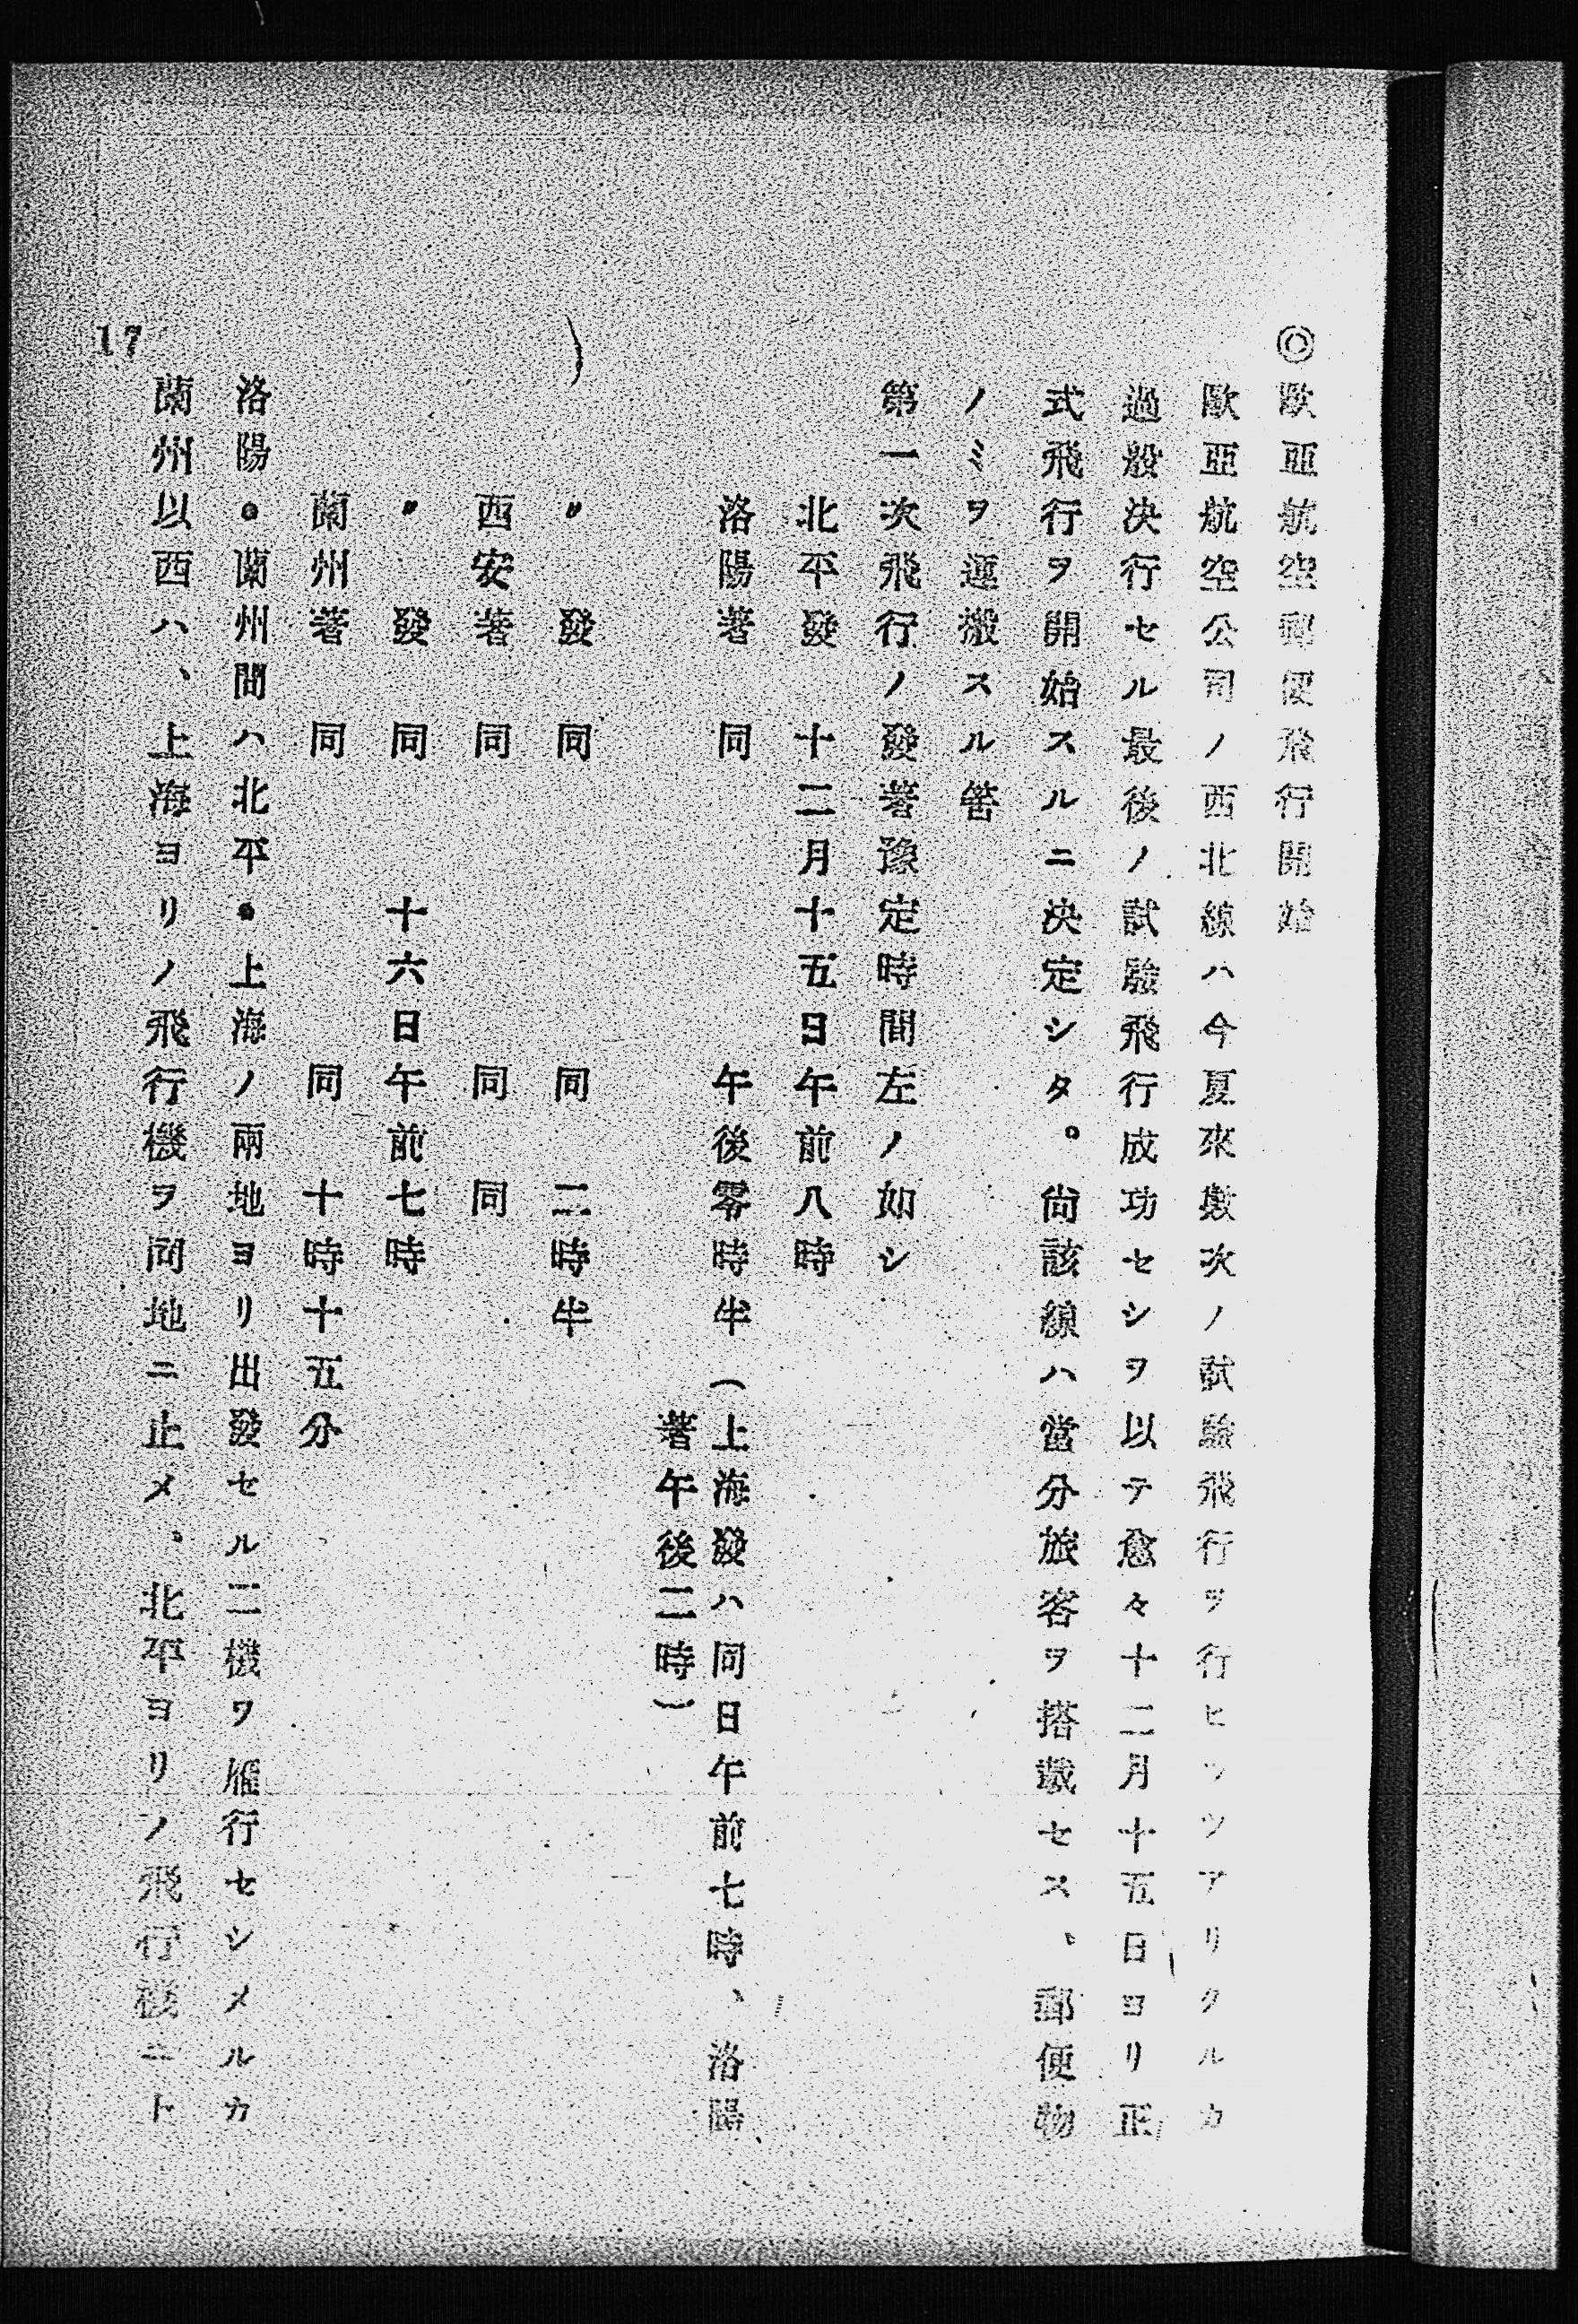 ◎歐亞航空郵便飛行開始
歐亞航空公司ノ西北線ハ今夏來數次ノ試驗飛行ヲ行ヒツツアリタルカ
過般決行セル最後ノ試驗飛行成功セシヲ以テ愈々十二月十五日ヨリ正
式飛行ヲ開始スルニ決定シタ。尙該線ハ當分旅客ヲ搭載セス、郵便物
ノミヲ運搬スル筈
第一次飛行ノ發著豫定時間左ノ如シ
北平發　十二月十五日午前八時
洛陽著　同　午後零時半（上海發ハ同日午前七時、洛陽
著午後二時）
〃　發　同　同　二時半
西安著　同　同　同
〃　發　同　十六日午前七時
蘭州著　同　同　十時十五分
洛陽。蘭州間ハ北平。上海ノ兩地ヨリ出發セル二機ヲ雁行セシメルカ
蘭州以西ハ、上海ヨリノ飛行機ヲ同地ニ止メ、北平ヨリノ飛行機ニト
17